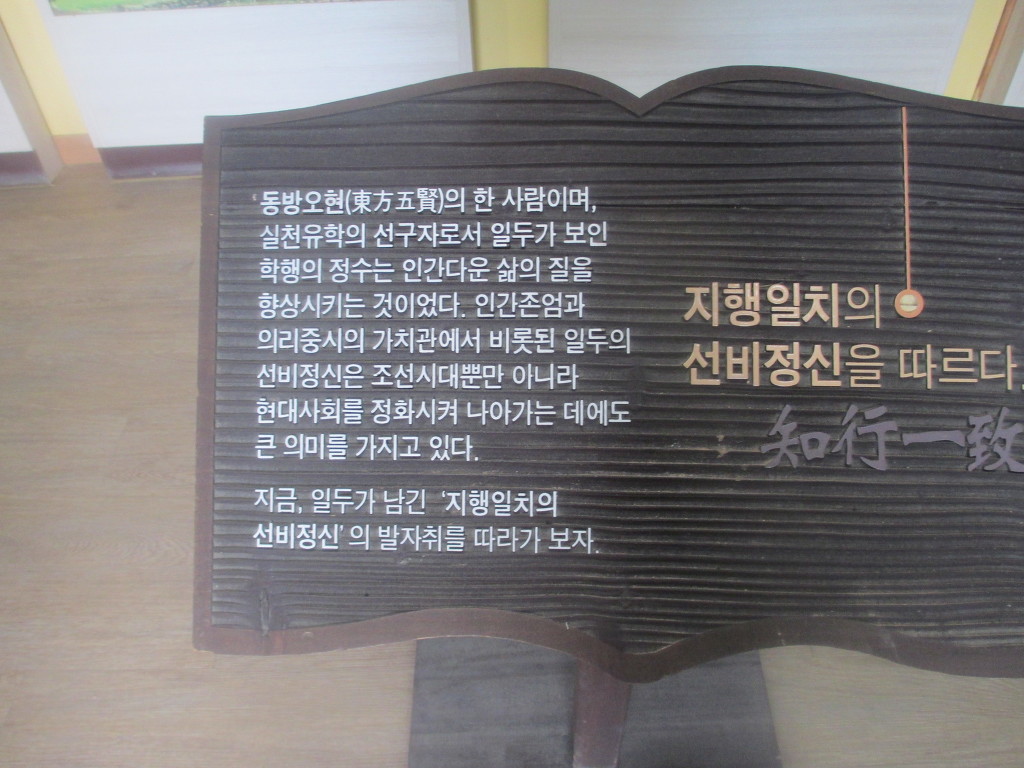 ‘동방오현(東方五賢)의 한 사람이며,
실천유학의 선구자로서 일두가 보인
학행의 정수는 인간다운 삶의 질을
향상시키는 것이었다. 인간존엄과
의리중시의 가치관에서 비롯된 일두의
선비정신은 조선시대뿐만 아니라
현대사회를 정화시켜 나아가는 데에도
큰 의미를 가지고 있다.
지금, 일두가 남긴 ‘지행일치의
선비정신’의 발자취를 따라가 보자.
지행일치의
선비정신을 따르다.
知行一致